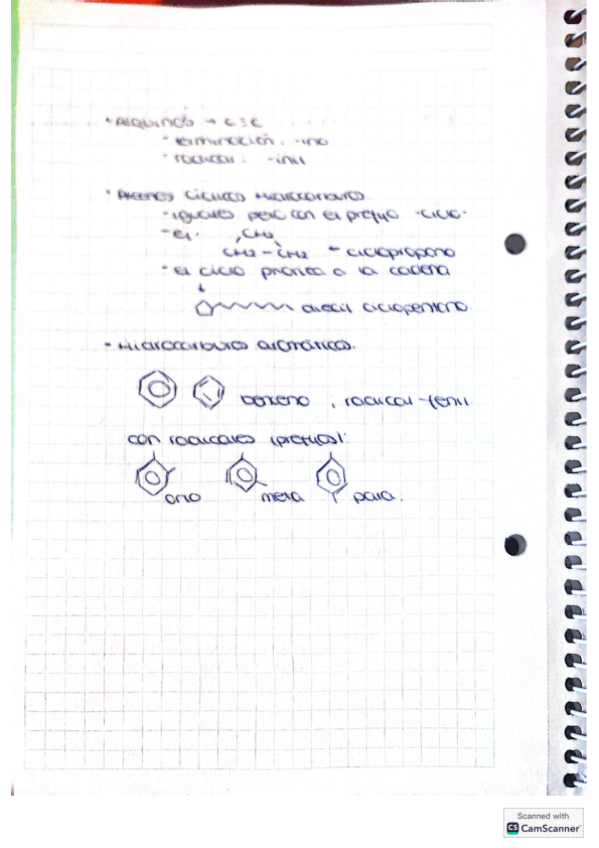 • Alquinos → C≡C
- terminación: -ino
- radical: -inil
• cíclicos Hidrocarburo.
- iguales pero con el prefijo -ciclo-
- ej. CH2
CH2 - CH2 ← ciclopropano
- El ciclo prioriza a la cadena
ciclopentano.
• Hidrocarburos aromáticos.
benceno, radical -fenil.
con radicales (prefijos):
orto meta para.
Scanned with
CS CamScanner